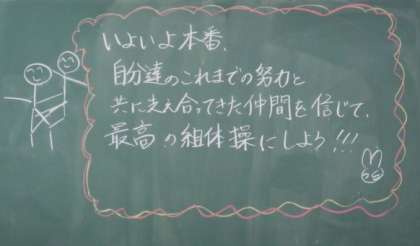 いよいよ本番、
自分達のこれまでの努力と
共に支え合ってきた仲間を信じて、
最高の組体操にしよう!!!